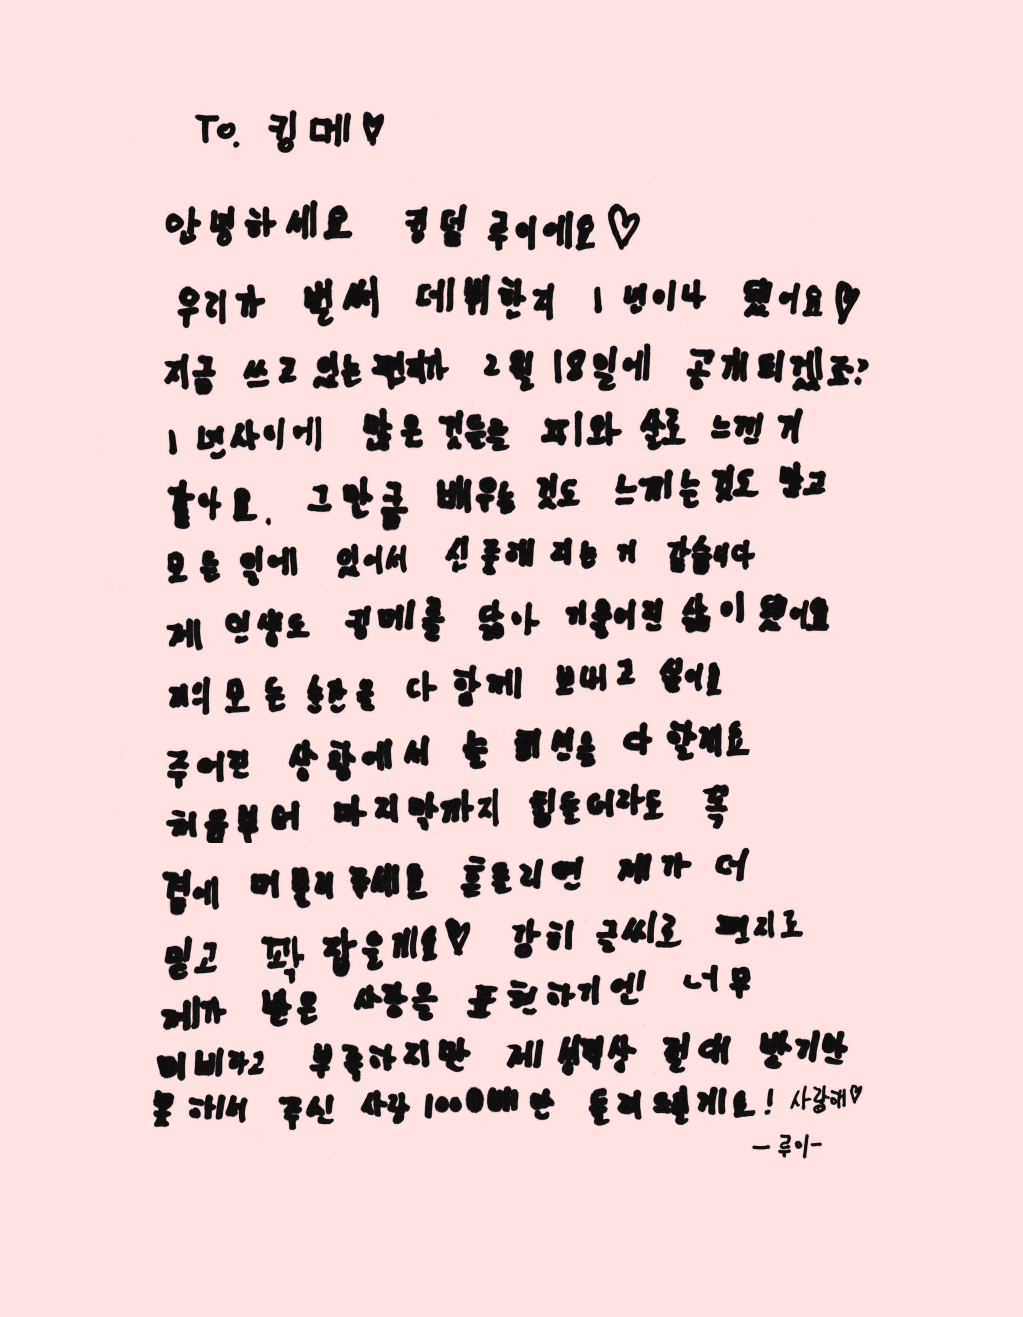 To. 킹메♡
안녕하세요 킹덤 루이에요♡
우리가 벌써 데뷔한지 1년이나 됐어요♡
지금 쓰고 있는 편지가 2월 18일에 공개되겠죠?
1년사이에 많은 것들을 피와 살로 느낀 거
같아요. 그만큼 배우는 것도 느끼는 것도 많고
모든 일에 있어서 신중해 지는 거 같습니다
제 인생도 킹메를 닮아 기울어진 삶이 됐어요
저의 모든 순간을 다 함께 보내고 싶어요
주어진 상황에서 늘 최선을 다 할게요
처음부터 마지막까지 힘들더라도 꼭
곁에 머물러 주세요 흔들리면 제가 더
믿고 꽉 잡을게요♡ 감히 글씨로 편지로
제가 받은 사랑을 표현하기엔 너무
미비하고 부족하지만 제 성격상 절대 받기만
못 하니까 주신 사랑 1000배만 돌려 드릴게요! 사랑해♡
- 루이-